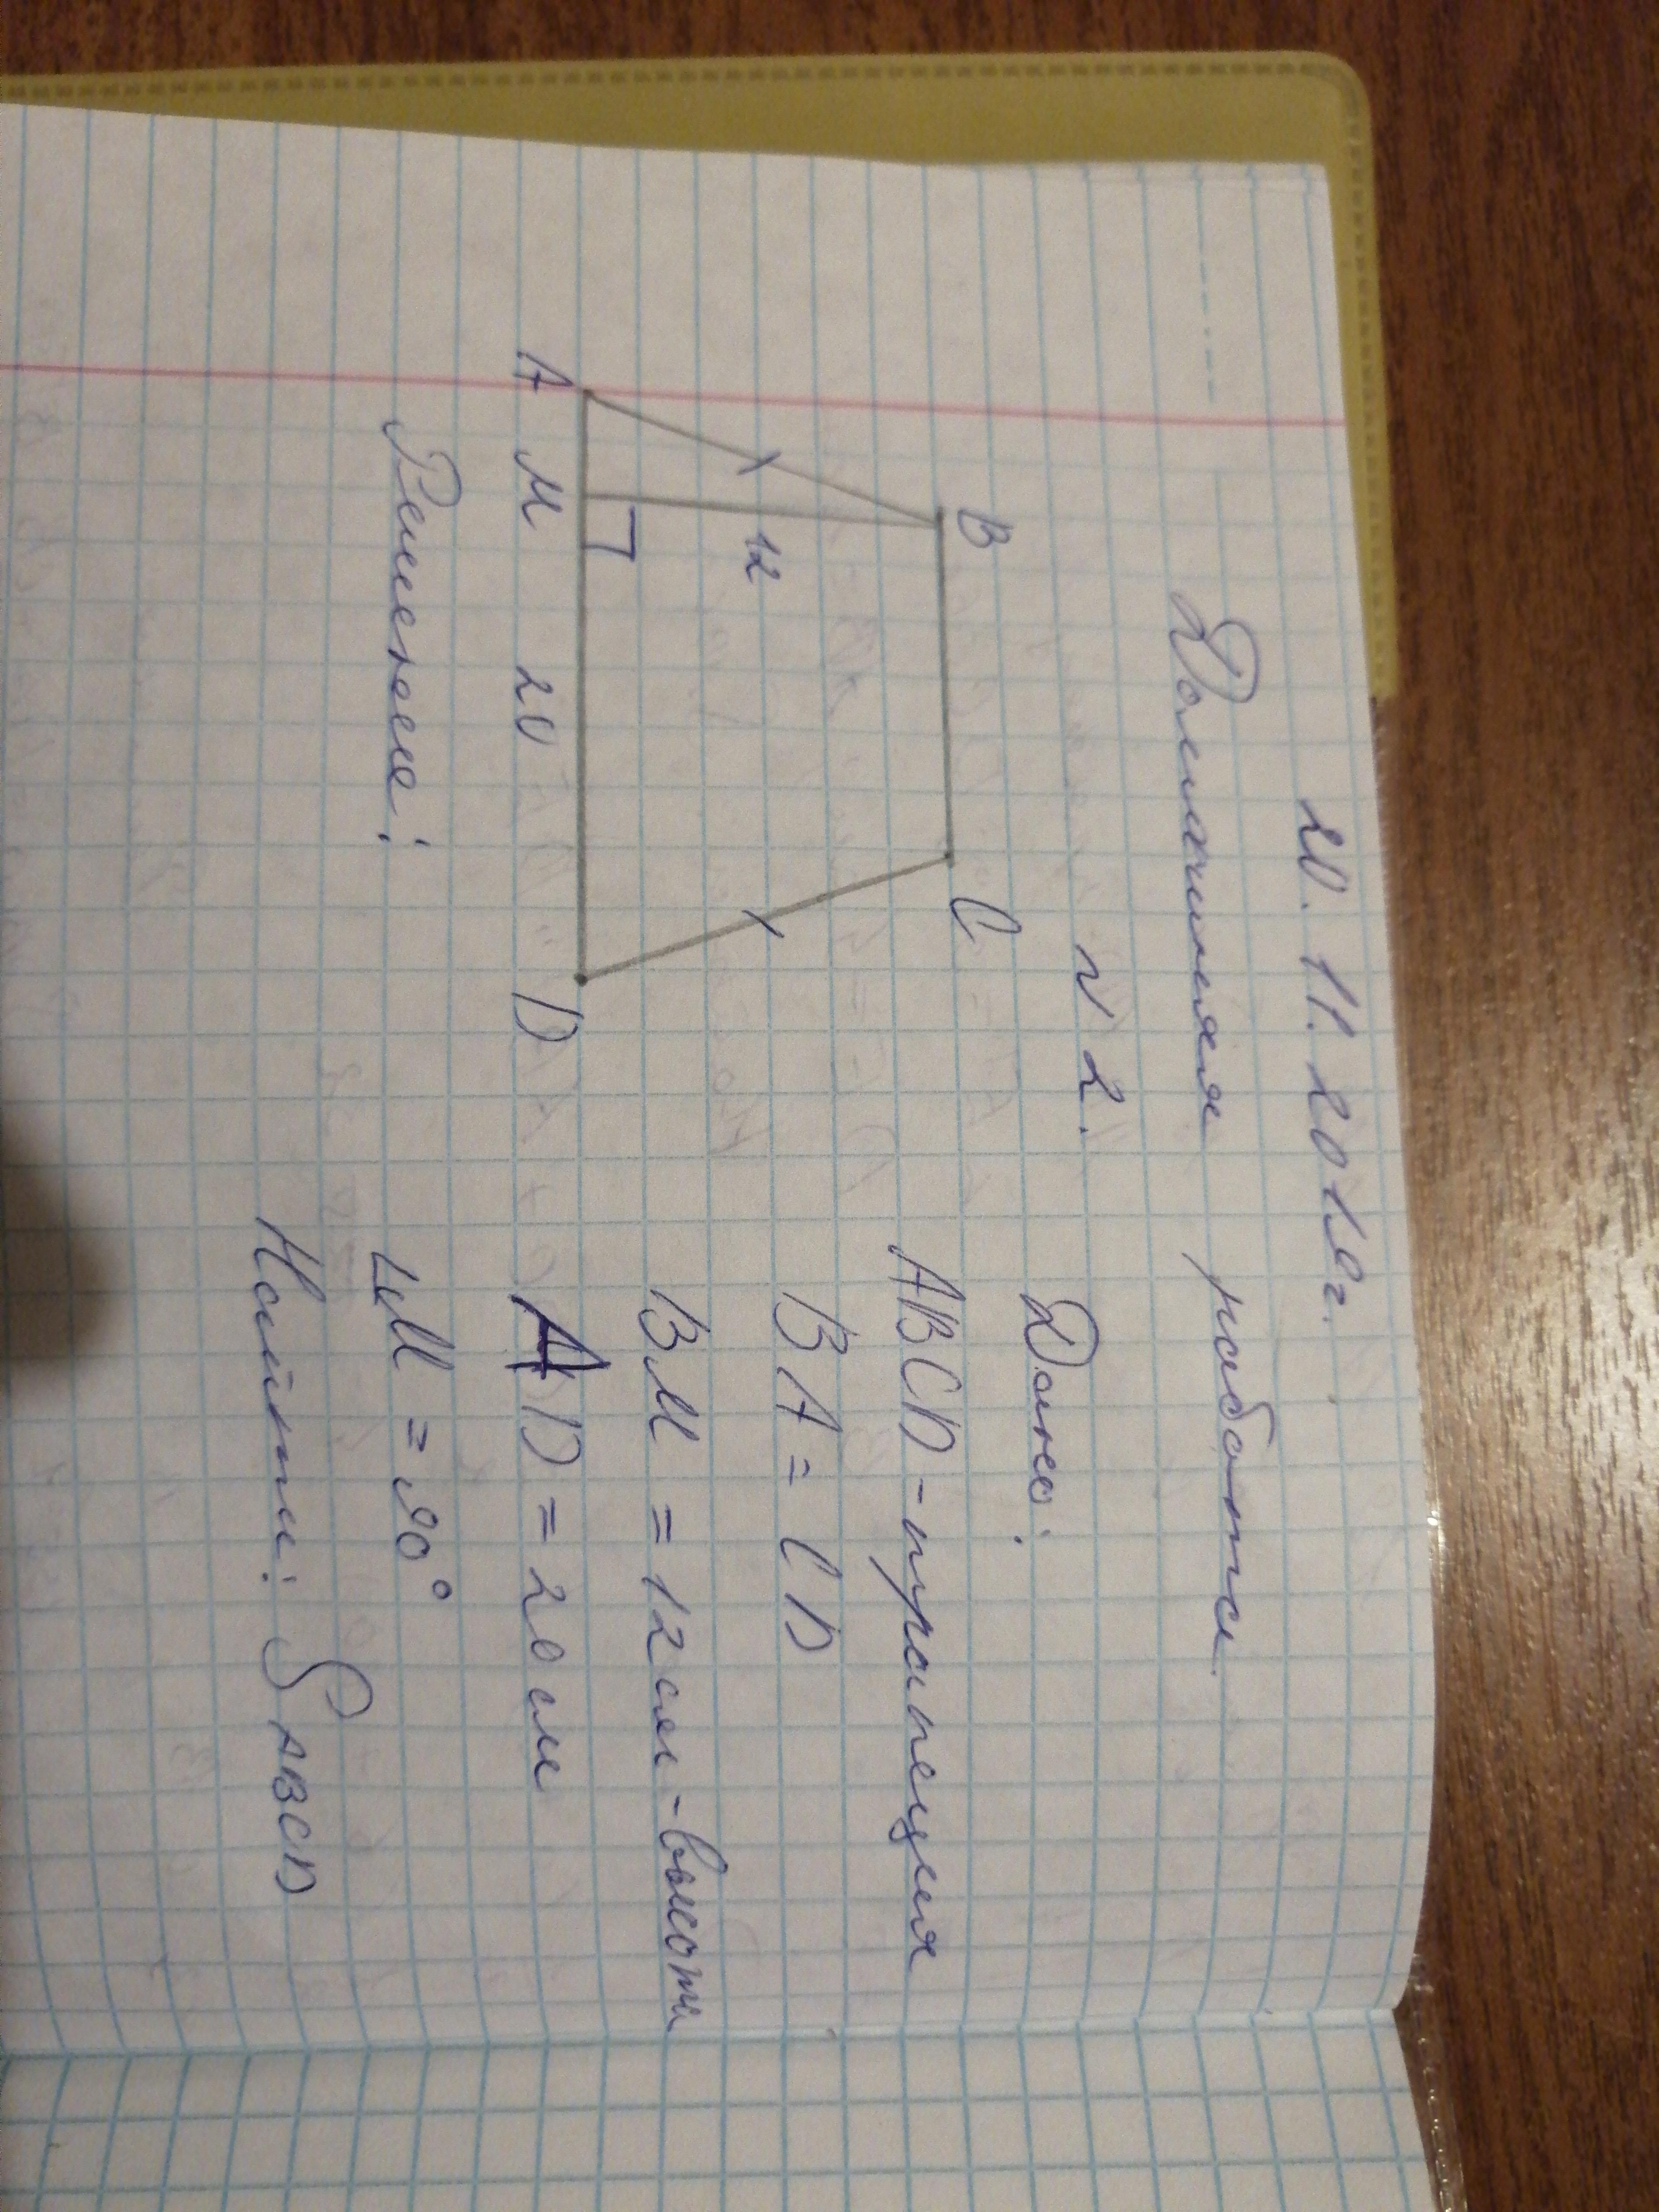 20. 11. 2019г.
Домашняя работа.
N 2.
Дано:
B C
ABCD - трапеция
BA = CD
12
BM = 12см - высота
A M 20 D
AD = 20 см
Решение:
∠M = 90°
Найти: S ABCD